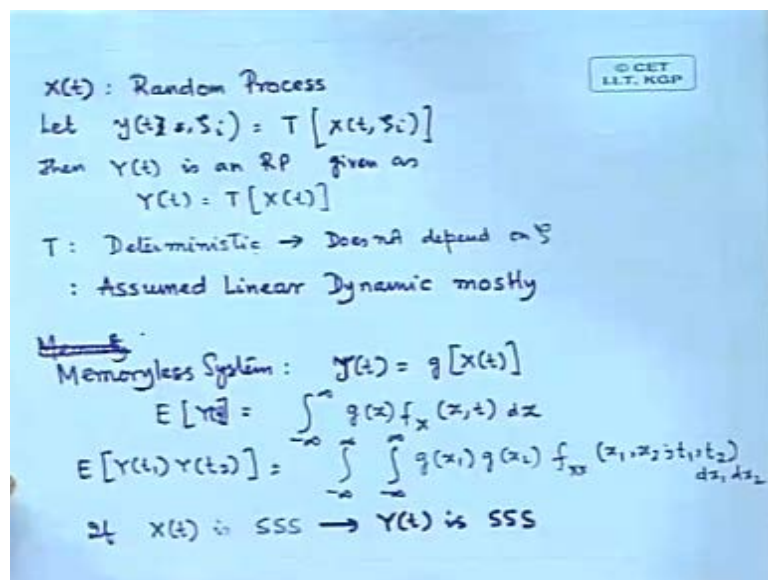 © CET
I.I.T. KGP
X(t) : Random Process
Let y(t, ζi) = T [ x(t, ζi) ]
Then Y(t) is an RP given as
Y(t) = T [ X(t) ]
T : Deterministic → Does not depend on ζ
: Assumed Linear Dynamic mostly
Memoryless System : Y(t) = g [X(t)]
E [Y(t)] = ∫_{-∞}^{∞} g(x) f_x (x,t) dx
E [Y(t₁) Y(t₂)] = ∫_{-∞}^{∞} ∫_{-∞}^{∞} g(x₁) g(x₂) f_{xx} (x₁,x₂;t₁,t₂) dx₁ dx₂
If X(t) is SSS → Y(t) is SSS